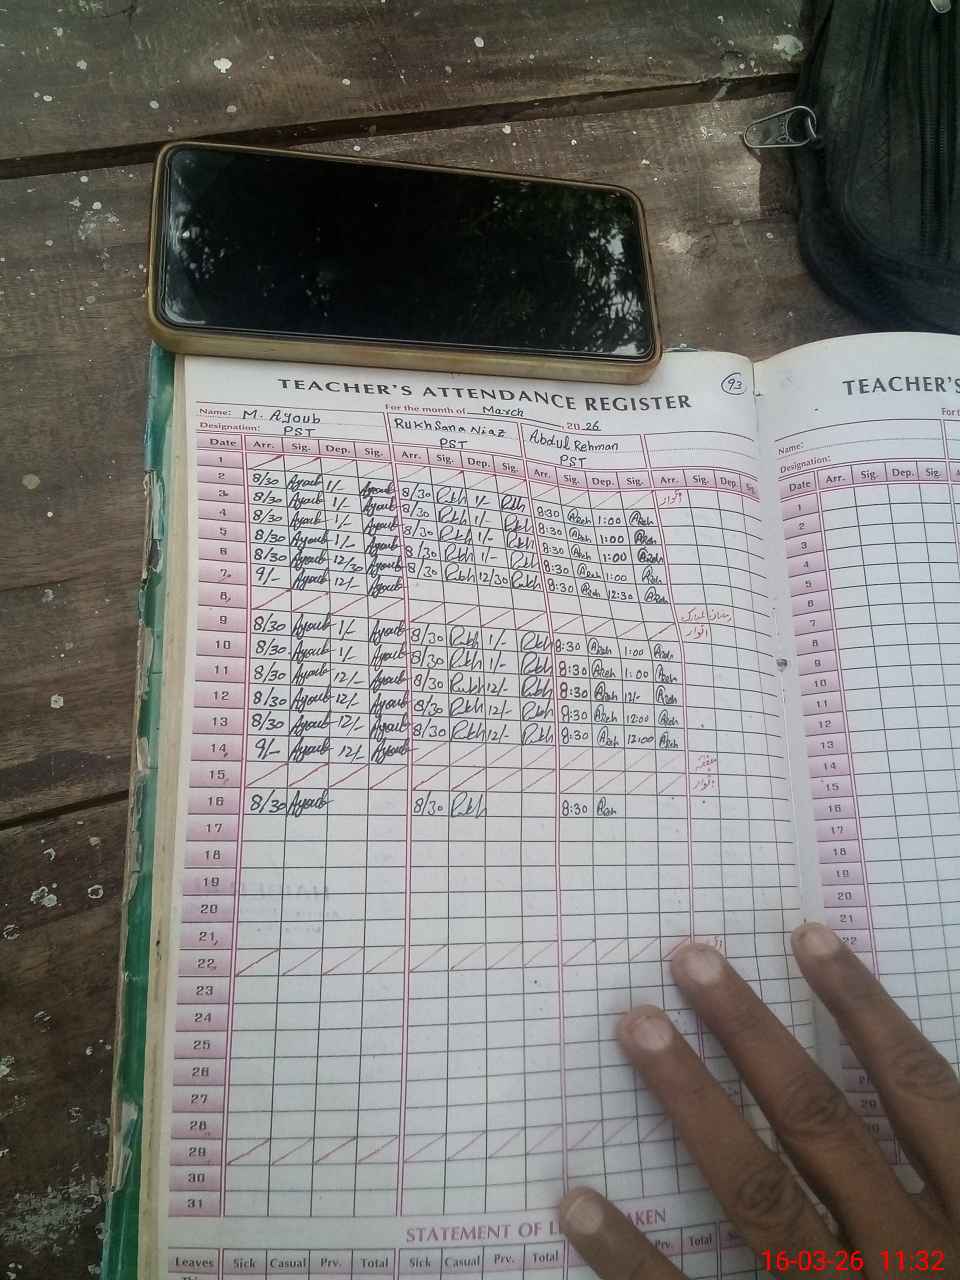 93
TEACHER'S ATTENDANCE REGISTER
For the month of March 2026
Name: M. Ayoub Rukhsana Niaz Abdul Rehman
Designation: PST PST PST
Date Arr. Sig. Dep. Sig. Arr. Sig. Dep. Sig. Arr. Sig. Dep. Sig. Arr. Sig. Dep. Sig.
1 اتوار
2 8/30 Ayoub 1/- Ayoub 8/30 Rukh 1/- Rukh 8:30 1:00
3 8/30 Ayoub 1/- Ayoub 8/30 Rukh 1/- Rukh 8:30 1:00
4 8/30 Ayoub 1/- Ayoub 8/30 Rukh 1/- Rukh 8:30 1:00
5 8/30 Ayoub 1/- Ayoub 8/30 Rukh 1/- Rukh 8:30 1:00
6 8/30 Ayoub 12/30 Ayoub 8/30 Rukh 12/30 Rukh 8:30 12:30
7 9/- Ayoub 12/- Ayoub
8 اتوار
9 8/30 Ayoub 1/- Ayoub 8/30 Rukh 1/- Rukh 8:30 1:00
10 8/30 Ayoub 1/- Ayoub 8/30 Rukh 1/- Rukh 8:30 1:00
11 8/30 Ayoub 12/- Ayoub 8/30 Rukh 12/- Rukh 8:30 12/-
12 8/30 Ayoub 12/- Ayoub 8/30 Rukh 12/- Rukh 8:30 12:00
13 8/30 Ayoub 12/- Ayoub 8/30 Rukh 12/- Rukh 8:30 12:00
14 9/- Ayoub 12/- Ayoub
15 اتوار
16 8/30 Ayoub 8/30 Rukh 8:30
17
18
19
20
21
22
23
24
25
26
27
28
29
30
31
STATEMENT OF
Leaves Sick Casual Prv. Total Sick Casual Prv. Total
TEACHER'S
Name:
Designation:
Date Arr. Sig. Dep. Sig.
1
2
3
4
5
6
7
8
9
10
11
12
13
14
15
16
17
18
19
20
21
22
16-03-26 11:32